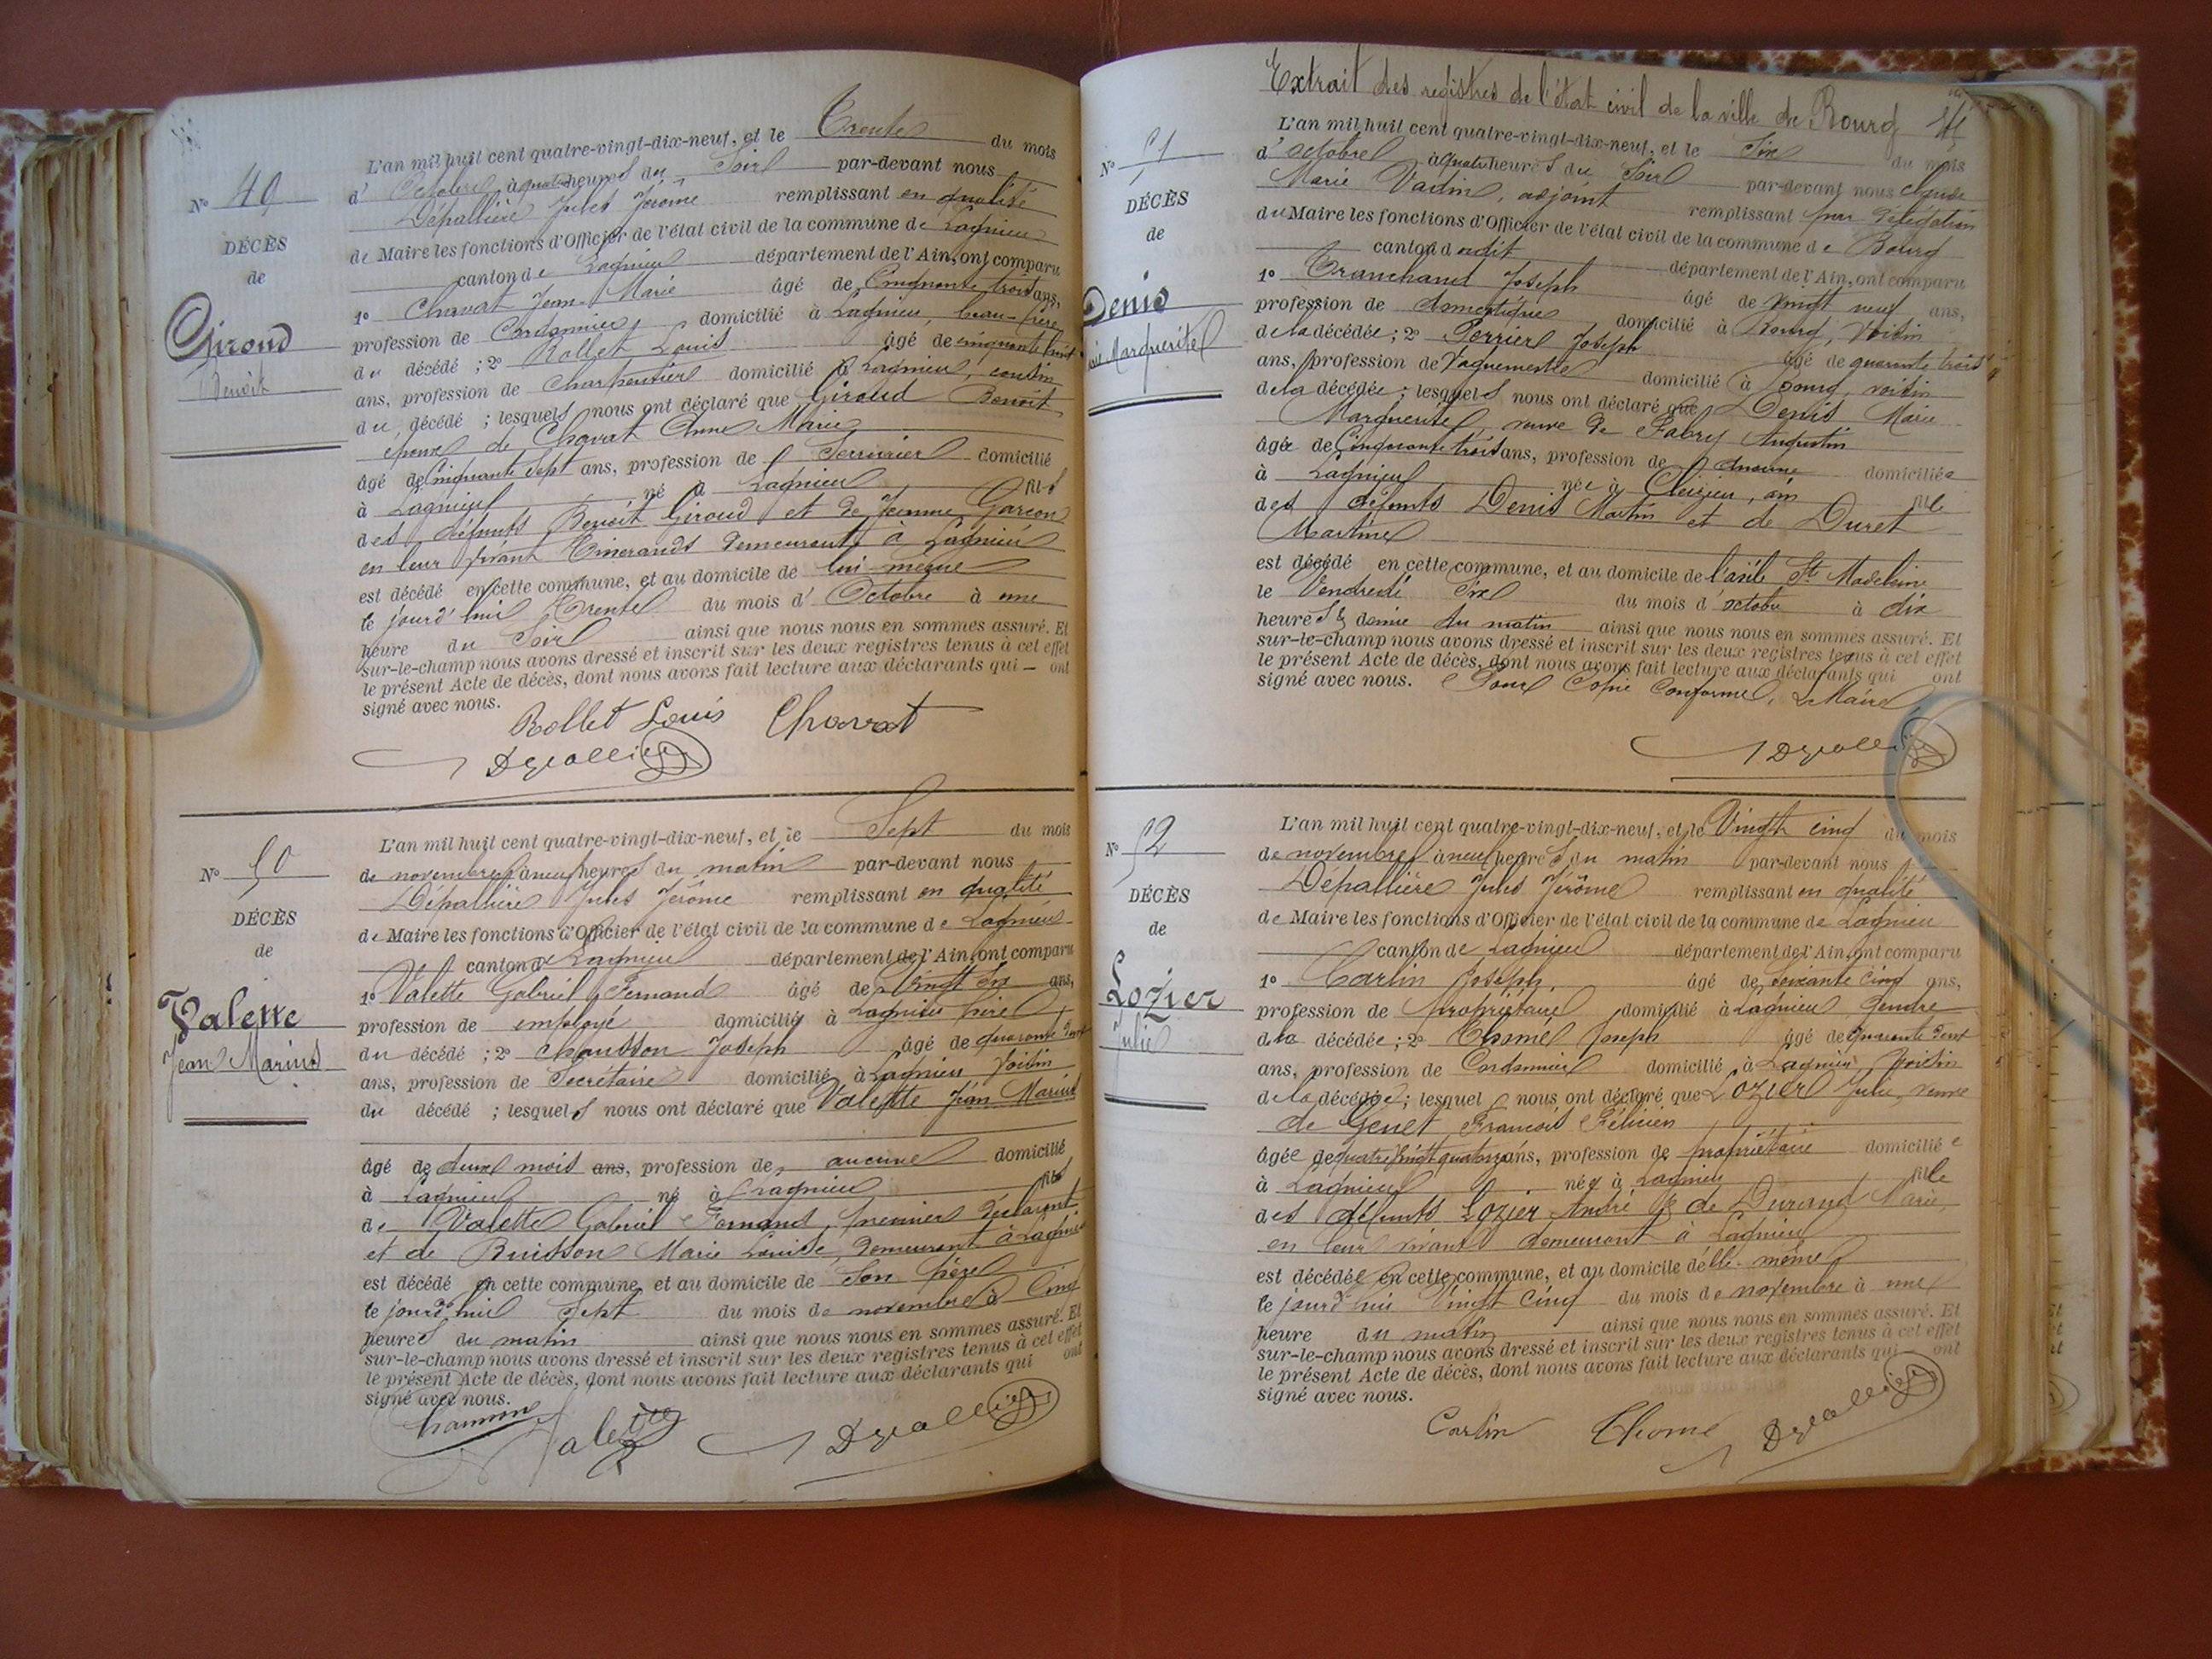 N° 49
DÉCÈS
de
Giroud
Benoit
L'an mil huit cent quatre-vingt-dix-neuf, et le Trente du mois
d' Octobre à quatre heures du Soir par-devant nous
Dépallière Jules Jérôme remplissant en qualité
de Maire les fonctions d'Officier de l'état civil de la commune de Lagnieu
canton de Lagnieu département de l'Ain, ont comparu
1° Chavat Jean-Marie âgé de Cinquante trois ans,
profession de Cordonnier domicilié à Lagnieu, beau-frère
du décédé ; 2° Rollet Louis âgé de cinquante huit
ans, profession de Charpentier domicilié à Lagnieu, cousin
du décédé ; lesquels nous ont déclaré que Giroud Benoit
époux de Chavat Anne Marie
âgé de Cinquante Sept ans, profession de Serrurier domicilié
à Lagnieu né à Lagnieu fils
des défunts Benoit Giroud et de Jeanne Garcon
en leur vivant demeurant à Lagnieu
est décédé en cette commune, et au domicile de lui-même
le jourd'hui Trente du mois d' Octobre à une
heure du Soir ainsi que nous nous en sommes assuré. Et
sur-le-champ nous avons dressé et inscrit sur les deux registres tenus à cet effet
le présent Acte de décès, dont nous avons fait lecture aux déclarants qui — ont
signé avec nous.
Rollet Louis Chavat
N° 50
DÉCÈS
de
Valette
Jean Marius
L'an mil huit cent quatre-vingt-dix-neuf, et le Sept du mois
de novembre à neuf heures du matin par-devant nous
Dépallière Jules Jérôme remplissant en qualité
de Maire les fonctions d'Officier de l'état civil de la commune de Lagnieu
canton de Lagnieu département de l'Ain, ont comparu
1° Valette Gabriel Fernand âgé de Vingt Six ans,
profession de employé domicilié à Lagnieu père
du décédé ; 2° Chausson Joseph âgé de quarante Sept
ans, profession de Secrétaire domicilié à Lagnieu Voisin
du décédé ; lesquels nous ont déclaré que Valette Jean Marius
âgé de deux mois ans, profession de aucune domicilié
à Lagnieu né à Lagnieu fils
de Valette Gabriel Fernand, premier déclarant
et de Buisson Marie Louise, demeurant à Lagnieu
est décédé en cette commune, et au domicile de Son père
le jourd'hui Sept du mois de novembre à Cinq
heures du matin ainsi que nous nous en sommes assuré. Et
sur-le-champ nous avons dressé et inscrit sur les deux registres tenus à cet effet
le présent Acte de décès, dont nous avons fait lecture aux déclarants qui ont
signé avec nous.
Valette
Extrait des registres de l'état civil de la ville de Bourg
N° 51
DÉCÈS
de
Denis
Marguerite
L'an mil huit cent quatre-vingt-dix-neuf, et le Six du mois
d' octobre à quatre heures du Soir par-devant nous
Marie Vadin, adjoint remplissant par délégation
du Maire les fonctions d'Officier de l'état civil de la commune de Bourg
canton dudit département de l'Ain, ont comparu
1° Tranchand Joseph âgé de vingt neuf ans,
profession de domestique domicilié à Bourg, Voisin
de la décédée ; 2° Perrier Joseph âgé de quarante trois
ans, profession de Vaguemestre domicilié à Bourg, voisin
de la décédée ; lesquels nous ont déclaré que Denis Marie
Marguerite, veuve de Fabry Augustin
âgée de Cinquante trois ans, profession de aucune domiciliée
à Lagnieu née à Cleizieu, ain fille
des défunts Denis Martin et de Duret
Martine
est décédé en cette commune, et au domicile de l'asile Ste Madeleine
le Vendredi Six du mois d' octobre à dix
heures & demie du matin ainsi que nous nous en sommes assuré. Et
sur-le-champ nous avons dressé et inscrit sur les deux registres tenus à cet effet
le présent Acte de décès, dont nous avons fait lecture aux déclarants qui ont
signé avec nous. Pour Copie Conforme, Le Maire
N° 52
DÉCÈS
de
Lozier
Julie
L'an mil huit cent quatre-vingt-dix-neuf, et le Vingt cinq du mois
de novembre à neuf heures du matin par-devant nous
Dépallière Jules Jérôme remplissant en qualité
de Maire les fonctions d'Officier de l'état civil de la commune de Lagnieu
canton de Lagnieu département de l'Ain, ont comparu
1° Carlin Joseph, âgé de Soixante Cinq ans,
profession de propriétaire domicilié à Lagnieu Gendre
de la décédée ; 2° Thomé Joseph âgé de Quarante Sept
ans, profession de Cordonnier domicilié à Lagnieu Voisin
de la décédée ; lesquel nous ont déclaré que Lozier Julie, veuve
de Genet François Félicien
âgée de quatre Vingt quatorze ans, profession de propriétaire domiciliée
à Lagnieu née à Lagnieu fille
des défunts Lozier André & de Durand Marie,
en leur vivant demeurant à Lagnieu
est décédée en cette commune, et au domicile d'elle-même
le jourd'hui Vingt Cinq du mois de novembre à une
heure du matin ainsi que nous nous en sommes assuré. Et
sur-le-champ nous avons dressé et inscrit sur les deux registres tenus à cet effet
le présent Acte de décès, dont nous avons fait lecture aux déclarants qui ont
signé avec nous.
Carlin Thomé